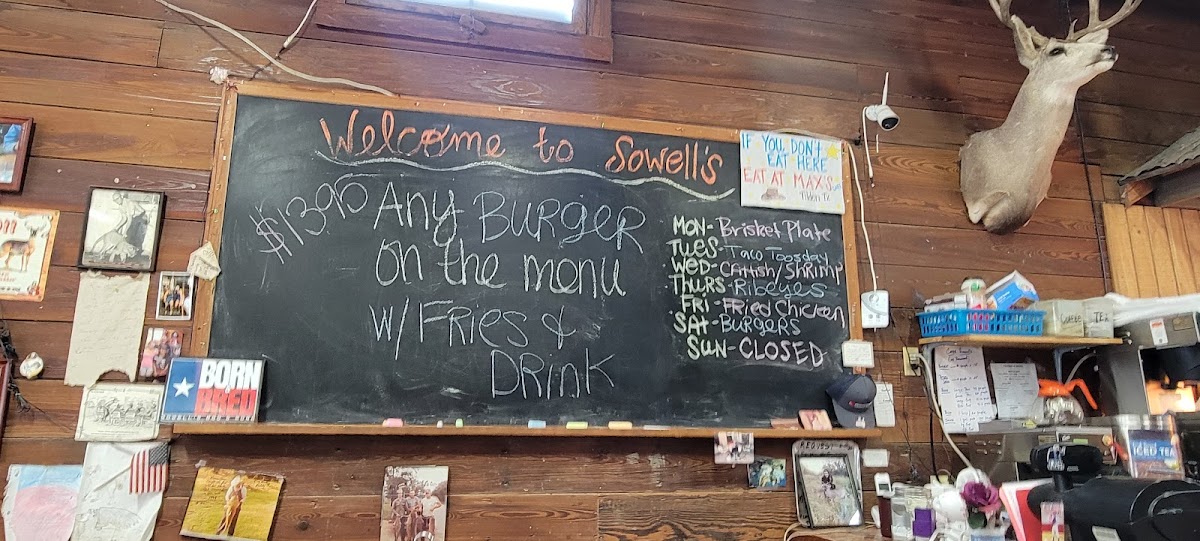 Welcome to Sowell's
$13.95 Any Burger
on the menu
w/ Fries &
Drink
IF YOU DON'T
EAT HERE
EAT AT MAX'S
Tilden Tx
MON- Brisket Plate
TUES- Taco Toosday
WED- CAtfish/SHRImp
THURS- Ribeyes
FRI- FRied Chicken
SAT- BURGERS
SUN- CLOSED
BORN
BRED
ICED TEA
TEA